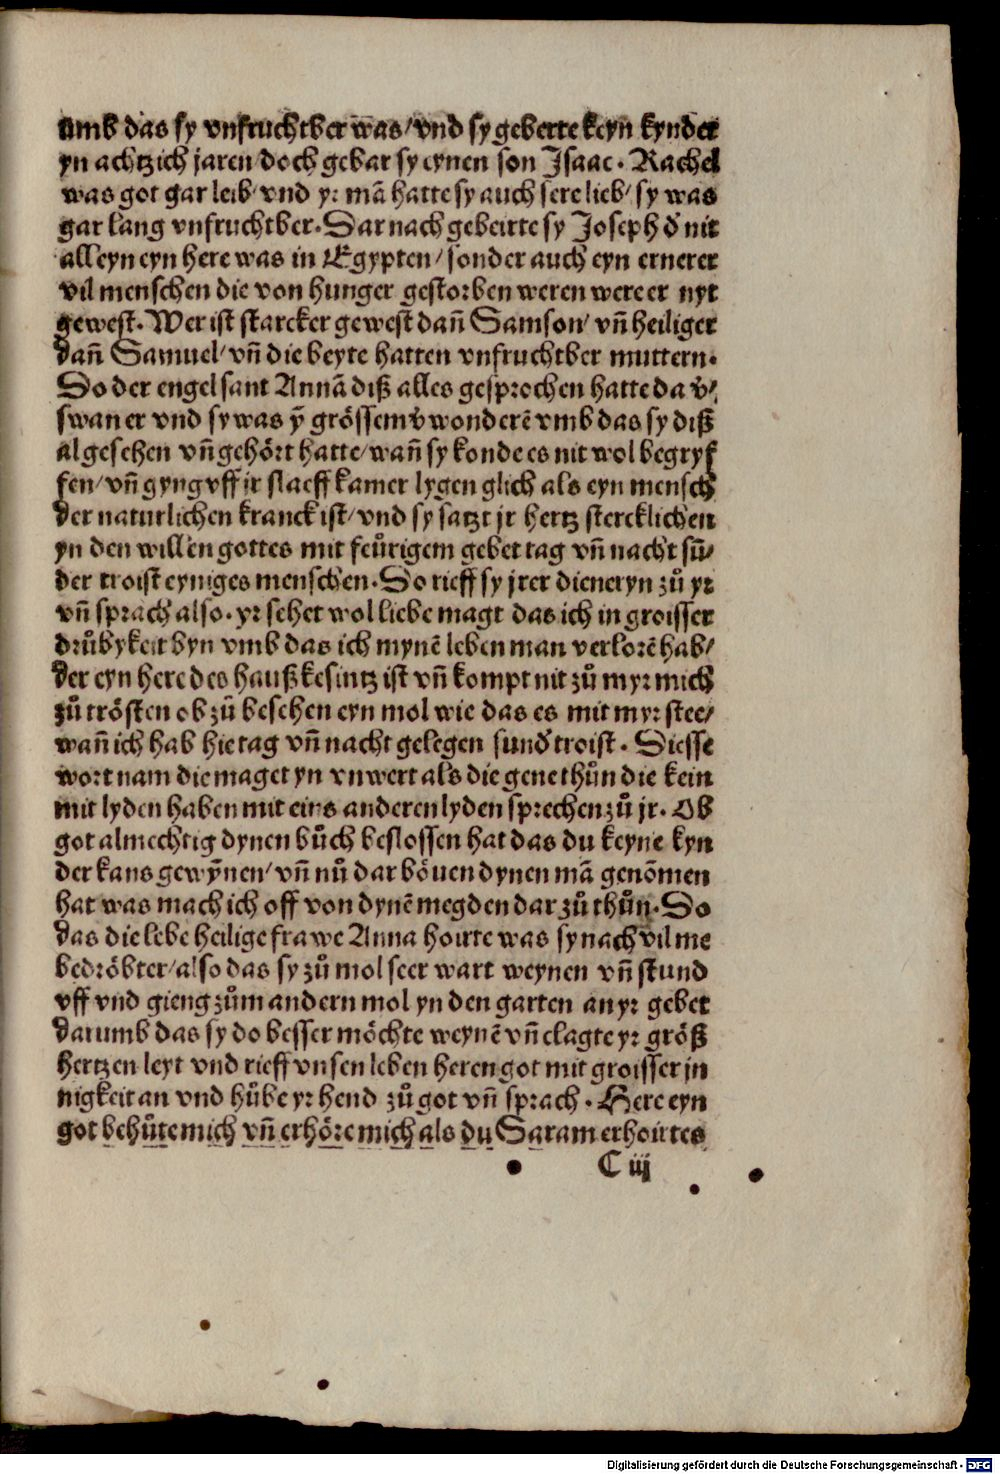 vmb das sy vnfruchtber was/ vnd sy geberte keyn kynder
yn achtzich jaren doch gebar sy eynen son Jsaac. Rachel
was got gar leib/ vnd yr mā hatte sy auch sere lieb/ sy was
gar lang vnfruchtber. Dar nach gebeirte sy Joseph d̕ nit
alleyn eyn here was in Egypten/ sonder auch eyn ernerer
vil menschen die von hunger gestorben weren were er nyt
gewest. Wer ist starcker gewest dañ Samson/ vñ heiliger
dañ Samuel/ vñ die beyte hatten vnfruchtber muttern.
So der engel sant Annā diß alles gesprochen hatte da v̕/
swan er vnd sy was ȳ grössem v̕wonderē vmb das sy diß
al gesehen vñ gehört hatte/ wañ sy konde es nit wol begryf
fen/ vñ gyng vff jr slaeff kamer lygen glich als eyn mensch
der naturlichen kranck ist/ vnd sy satzt jr hertz stercklichen
yn den willen gottes mit feůrigem gebet tag vñ nacht sū/
der troist eyniges menschen. So rieff sy jrer dieneryn zů yr
vñ sprach also. yr sehet wol liebe magt das ich in groisser
drůbykeit byn vmb das ich mynē leben man verlorē hab/
der eyn here des hauß kesintz ist vñ kompt nit zů myr mich
zů trösten ob zů besehen eyn mol wie das es mit myr stee/
wañ ich hab hie tag vñ nacht gelegen sund̕ troist. Diesse
wort nam die maget yn vnwert als die gene thůn die kein
mit lyden haben mit eins anderen lyden sprechen zů jr. Ob
got almechtig dynen bůch beslossen hat das du keyne kyn
der kans gewȳnen/ vñ nů dar böuen dynen mā genōmen
hat was mach ich off von dynē megden dar zů thůn. So
das die lebe heilige frawe Anna hoirte was sy nach vil me
bedröbter/ also das sy zů mol seer wart weynen vñ stund
vff vnd gieng zům andern mol yn den garten an yr gebet
darumb das sy do besser möchte weynē vñ clagte yr größ
hertzen leyt vnd rieff vnsen leben heren got mit groisser jn
nigkeit an vnd hůbe yr hend zů got vñ sprach. Here eyn
got behůte mich vñ erhöre mich als du Saram erhoirtes
C iij
Digitalisierung gefördert durch die Deutsche Forschungsgemeinschaft - DFG